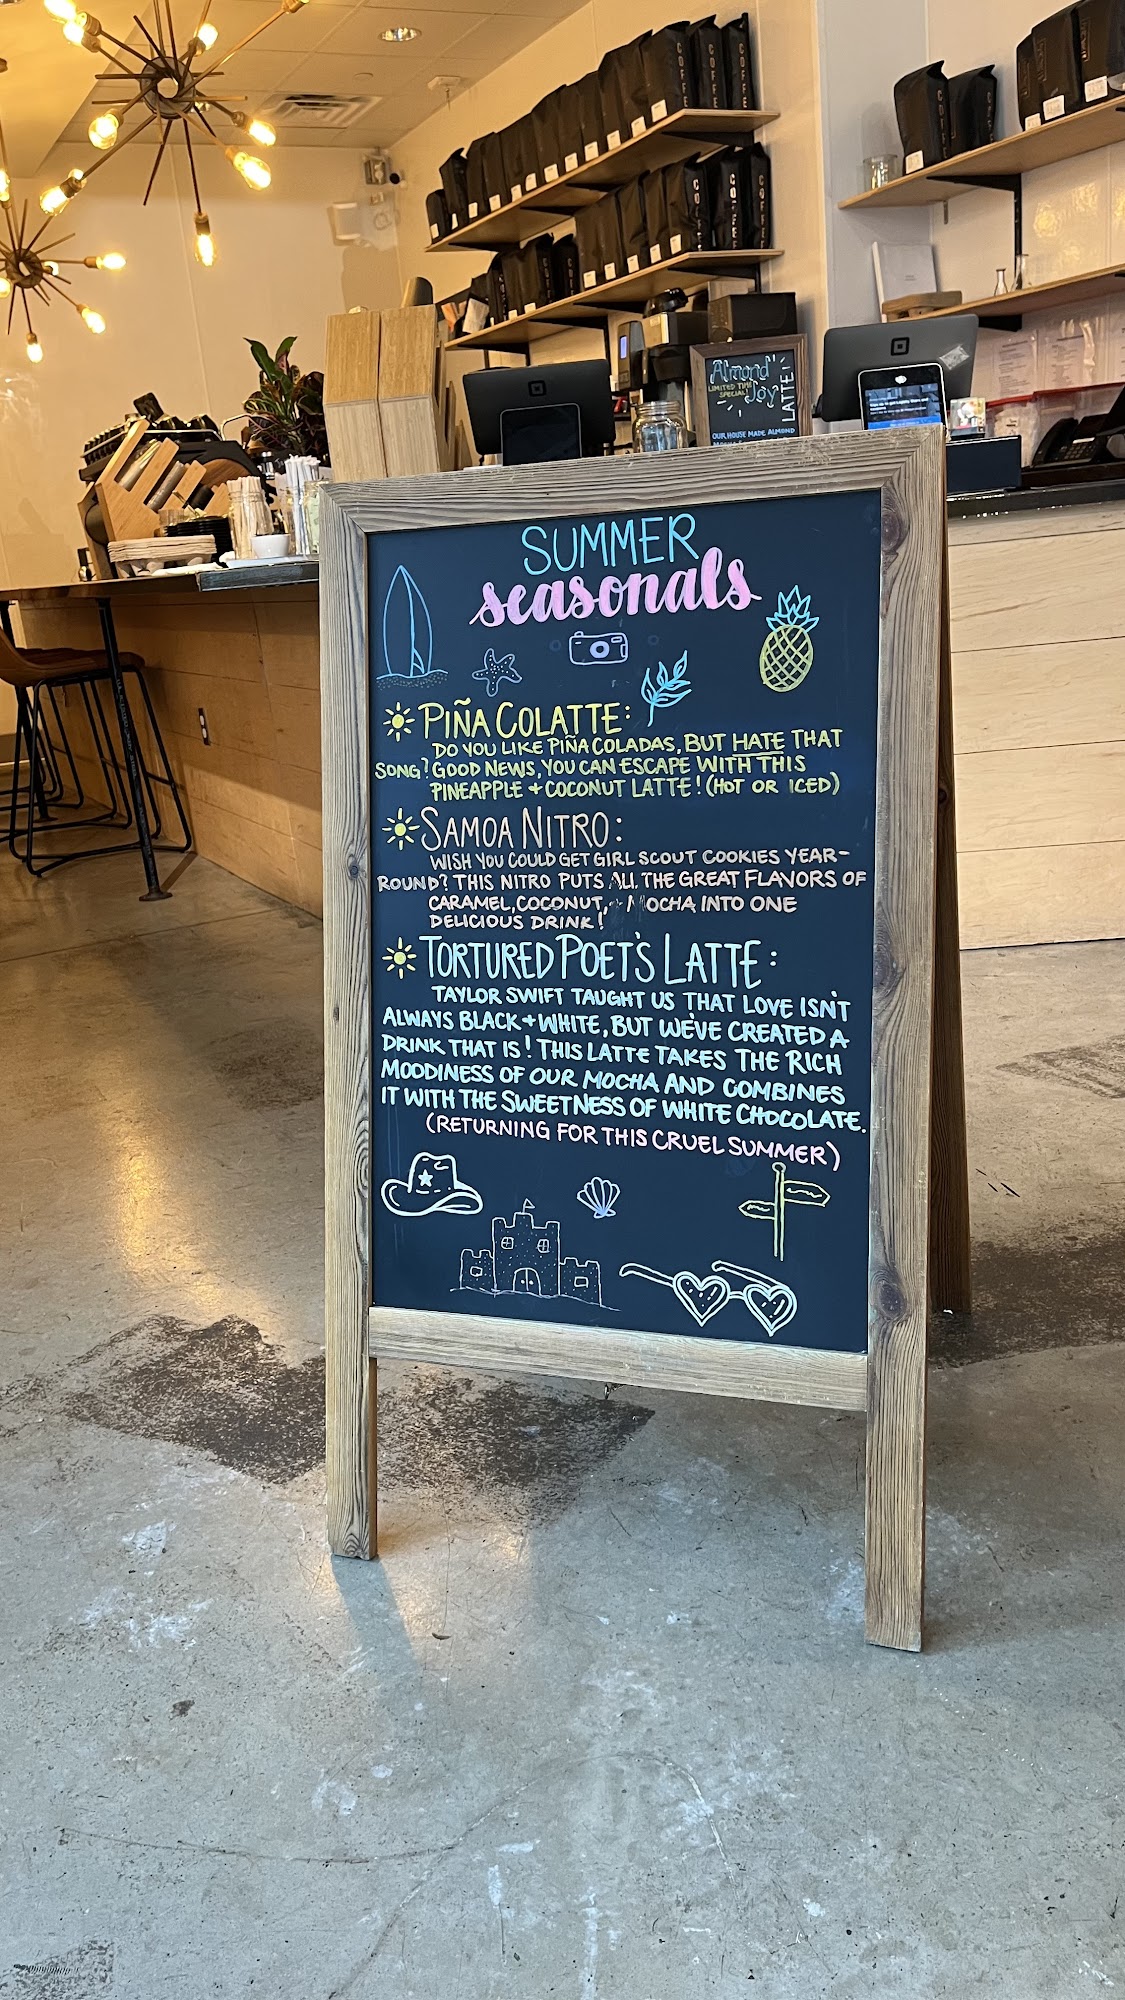 COFFEE
COFFEE
COFFEE
COFFEE
COFFEE
Almond
Joy
LATTE
LIMITED TIME
SPECIAL!
OUR HOUSE MADE ALMOND
SUMMER
seasonals
PIÑA COLATTE:
DO YOU LIKE PIÑA COLADAS, BUT HATE THAT
SONG? GOOD NEWS, YOU CAN ESCAPE WITH THIS
PINEAPPLE + COCONUT LATTE! (HOT OR ICED)
SAMOA NITRO:
WISH YOU COULD GET GIRL SCOUT COOKIES YEAR-
ROUND? THIS NITRO PUTS ALL THE GREAT FLAVORS OF
CARAMEL, COCONUT, + MOCHA INTO ONE
DELICIOUS DRINK!
TORTURED POET'S LATTE:
TAYLOR SWIFT TAUGHT US THAT LOVE ISN'T
ALWAYS BLACK + WHITE, BUT WE'VE CREATED A
DRINK THAT IS! THIS LATTE TAKES THE RICH
MOODINESS OF OUR MOCHA AND COMBINES
IT WITH THE SWEETNESS OF WHITE CHOCOLATE.
(RETURNING FOR THIS CRUEL SUMMER)